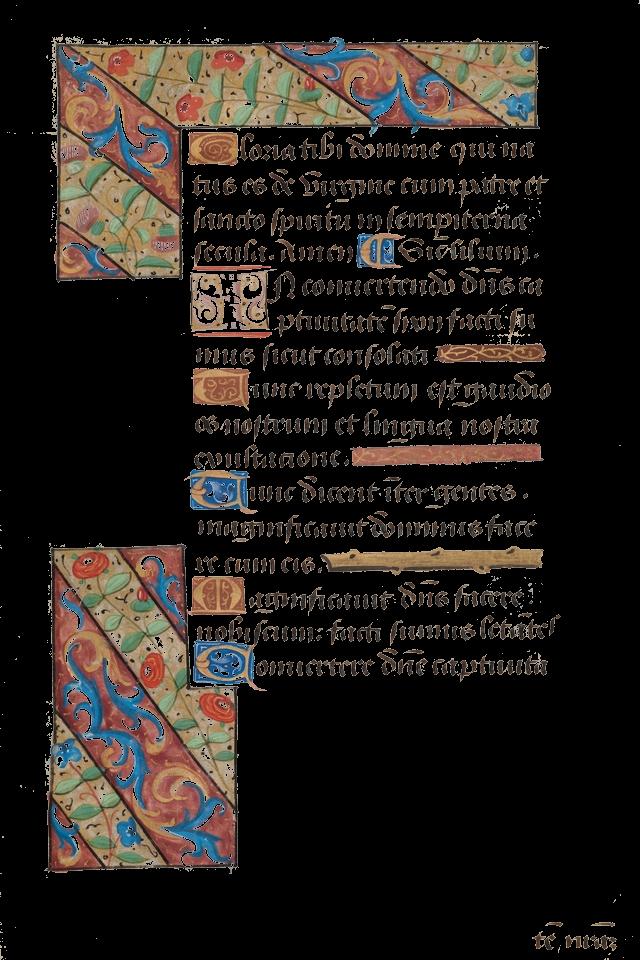 Gloria tibi domine qui na
tus es de virgine cum patre et
sancto spiritu in sempiterna
secula. Amen
IN conuertendo dn̄s ca
ptiuitatē sion facti su
mus sicut consolati
Tunc repletum est gaudio
os nostrum et lingua nostra
exultacione.
Tunc dicent īter gentes.
magnificauit dominus face
re cum eis.
Magnificauit dn̄s facere
nobiscum: facti sumus letātes
Conuertere dn̄e captiuita
tē, nr̄am